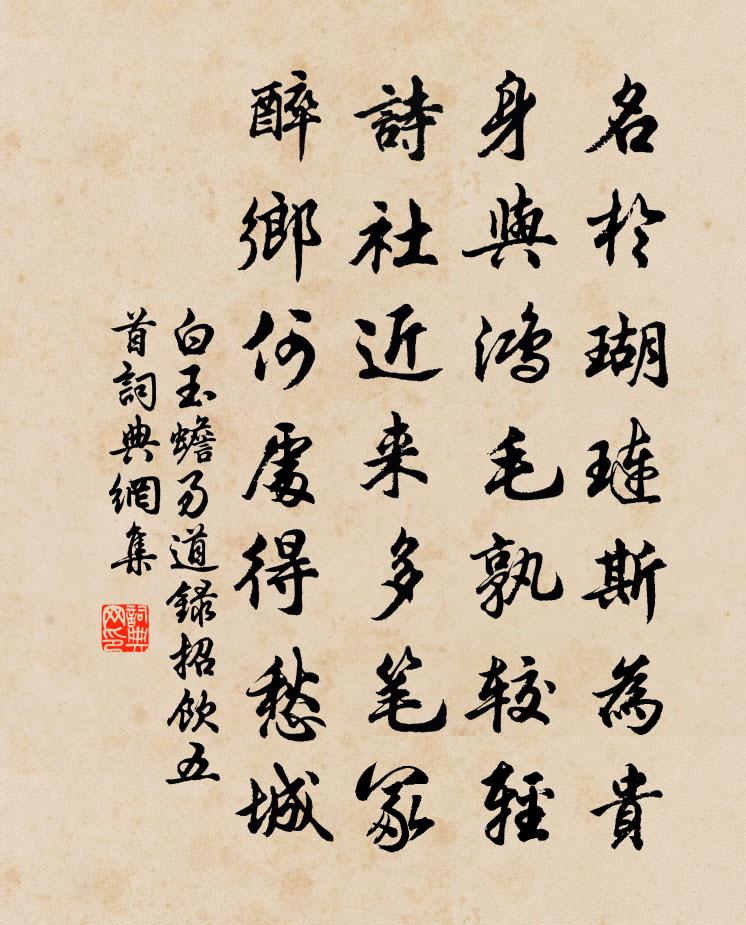 名於瑚璉斯為貴
身與鴻毛孰較輕
詩社近来多笔冢
醉鄉何處得愁城
白玉蟾易道錄招飲五
首詞典網集
詞典网印